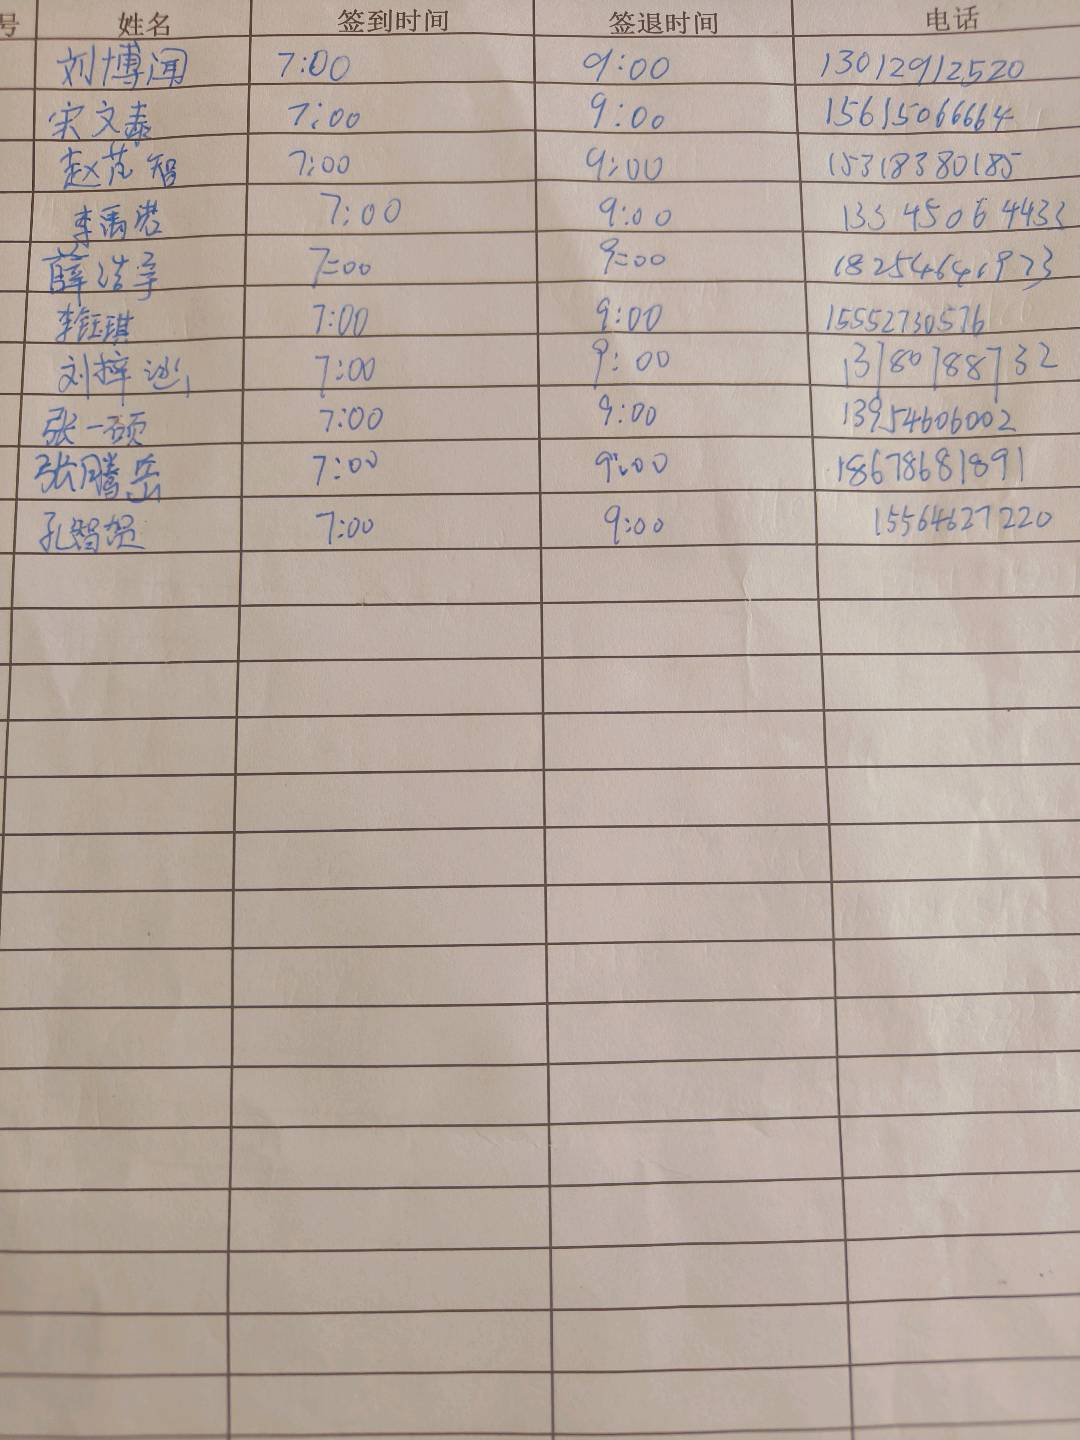 号 姓名 签到时间 签退时间 电话
刘博闻 7:00 9:00 13012912520
宋文泰 7:00 9:00 15615066664
赵茂智 7:00 9:00 15318380185
李禹岩 7:00 9:00 13345064433
薛浩宇 7:00 9:00 18254646973
李钰琪 7:00 9:00 15552730576
刘梓 7:00 9:00 13780788732
张一硕 7:00 9:00 13954606002
张腾岳 7:00 9:00 18678681891
孔智贺 7:00 9:00 15564627220